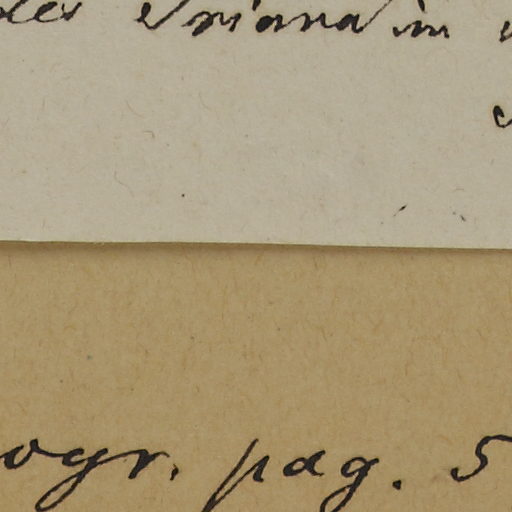 des Triana in
ogr. pag. 5